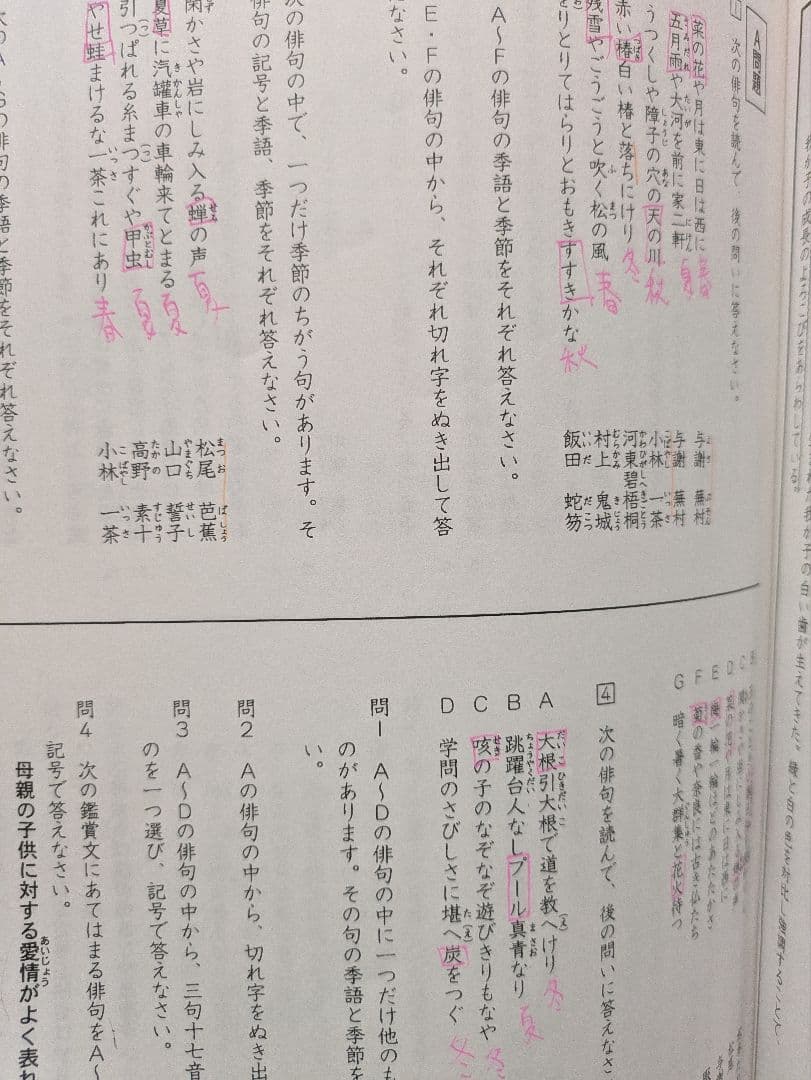 A問題
次の俳句を読んで、後の問いに答えなさい。
菜の花や月は東に日は西に 春 与謝 蕪村
五月雨や大河を前に家二軒 夏 与謝 蕪村
うつくしや障子の穴の天の川 秋 小林 一茶
赤い椿白い椿と落ちにけり 冬 河東碧梧桐
残雪やごうごうと吹く松の風 春 村上 鬼城
をりとりてはらりとおもきすすきかな 秋 飯田 蛇笏
A〜Fの俳句の季語と季節をそれぞれ答えなさい。
E・Fの俳句の中から、それぞれ切れ字をぬき出して答
なさい。
次の俳句の中で、一つだけ季節のちがう句があります。そ
の俳句の記号と季語、季節をそれぞれ答えなさい。
閑かさや岩にしみ入る蝉の声 夏 松尾 芭蕉
夏草に汽罐車の車輪来てとまる 夏 山口 誓子
引つぱれる糸まつすぐや甲虫 夏 高野 素十
やせ蛙まけるな一茶これにあり 春 小林 一茶
の俳句の季語と季節をそれぞれ答えなさい。
F 菊の香や奈良には古き仏たち
G 暗く暑く大群集と花火待つ
4 次の俳句を読んで、後の問いに答えなさ
A 大根引大根で道を教へけり 冬
B 跳躍台人なしプール真青なり 夏
C 咳の子のなぞなぞ遊びきりもなや 冬
D 学問のさびしさに堪へ炭をつぐ 冬
問1 A〜Dの俳句の中に一つだけ他のも
のがあります。その句の季語と季節を
い。
問2 Aの俳句の中から、切れ字をぬき出
問3 A〜Dの俳句の中から、三句十七音
のを一つ選び、記号で答えなさい。
問4 次の鑑賞文にあてはまる俳句をA〜
記号で答えなさい。
母親の子供に対する愛情がよく表れ